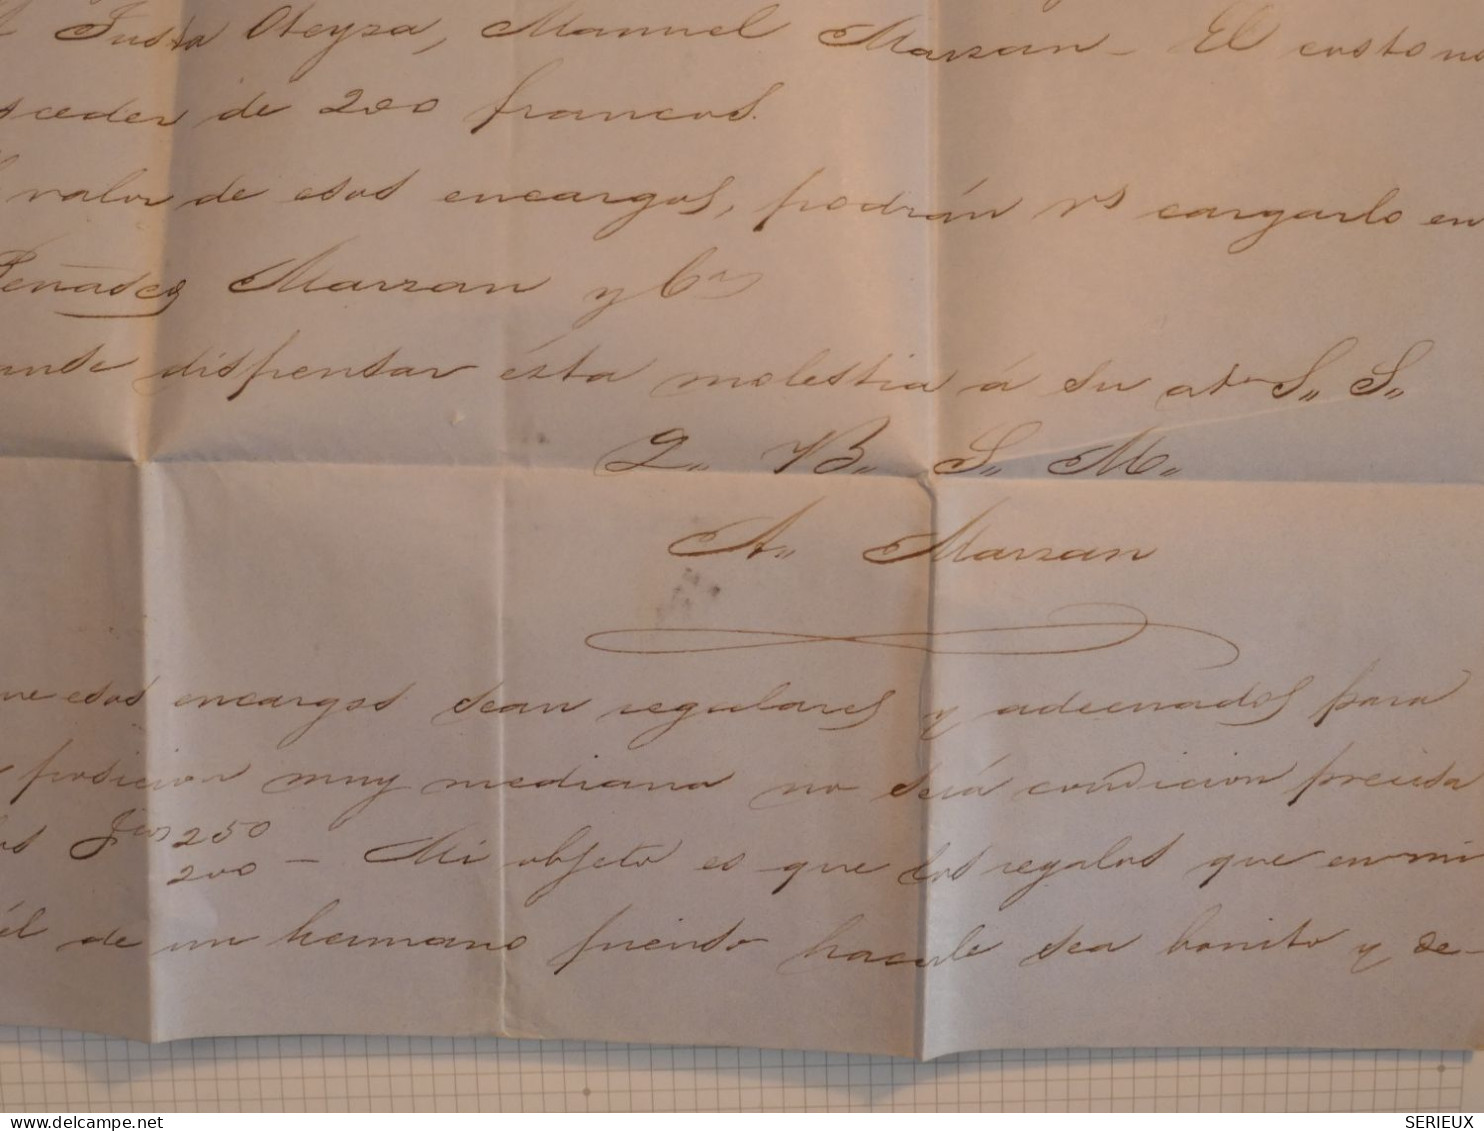 Justa Oteyza, Manuel Marzan - El costo no
sceder de 200 francos.
valor de esos encargos, podrán Vs cargarlo en
Penades Marzan y Ca
dispensar ésta molestia á su ato S,, S,,
Q,, B,, S,, M,,
A,, Marzan
ue esos encargos sean regulares y adecuados para
posicion muy mediana no será condicion precisa
os fcos 250
200 - Mi objeto es que los regalos que en mi
él de un hermano pienso hacerle sea bonito y de-
delcampe.net
SERIEUX